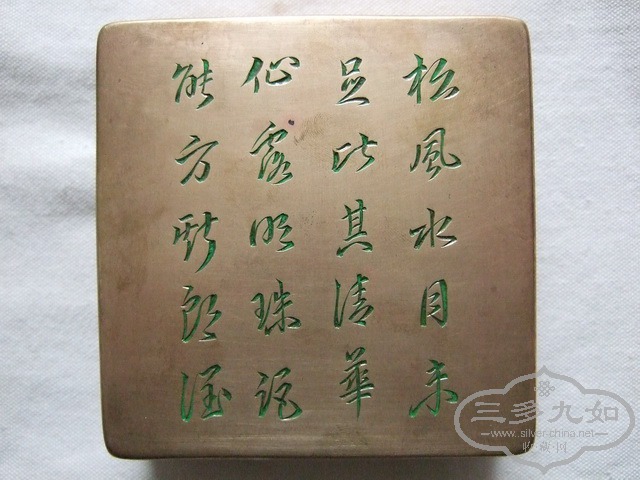 松風水月未
足比其清華
仙露明珠詎
能方斯朗潤
三多九如
www.silver-china.net
收藏网